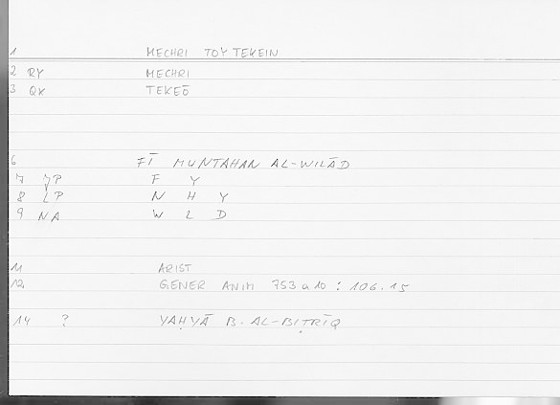 1 MECHRI TOY TEKEIN
2 RY MECHRI
3 QK TEKEŌ
6 FĪ MUNTAHAN AL-WILĀD
7 YP F Y
8 LP N H Y
9 NA W L D
11 ARIST
12 GENER ANIM 753 a 10 : 106.15
14 ? YAḤYĀ B. AL-BIṬRĪQ